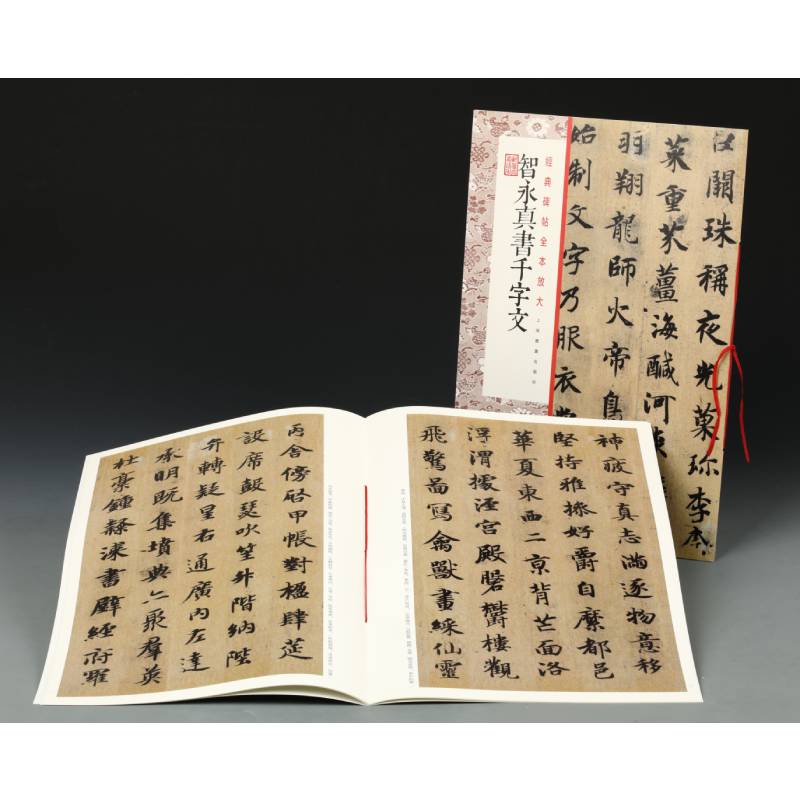 經典碑帖全本放大
智永真書千字文
上海書畫出版社
闕珠稱夜光菓珎李柰
菜重芥薑海醎河淡
羽翔龍師火帝鳥
始制文字乃服衣裳
神疲守真志滿逐物意移
堅持雅操好爵自縻都邑
華夏東西二京背芒面洛
浮渭據涇宮殿磐欝樓觀
飛驚啚寫禽獸畫綵仙靈
丙舍傍啓甲帳對楹肆筵
設席鼓瑟吹笙升階納陛
弁轉疑星右通廣內左達
承明既集墳典亦聚羣英
杜稾鍾隸漆書壁經府羅